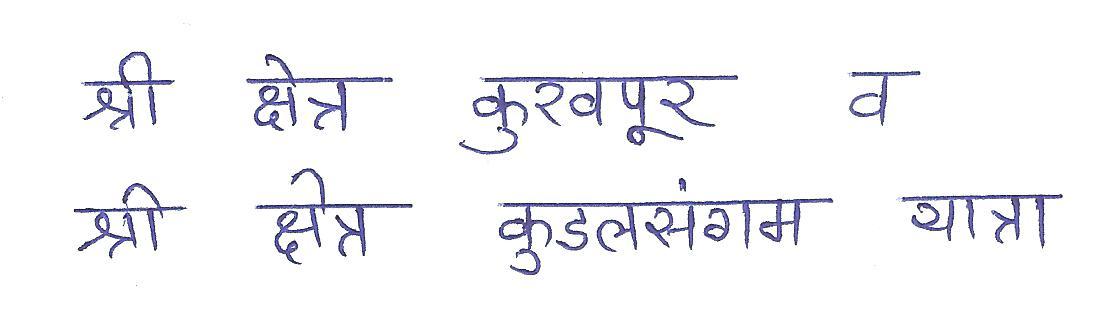 श्री क्षेत्र कुरवपूर व
श्री क्षेत्र कुडलसंगम यात्रा